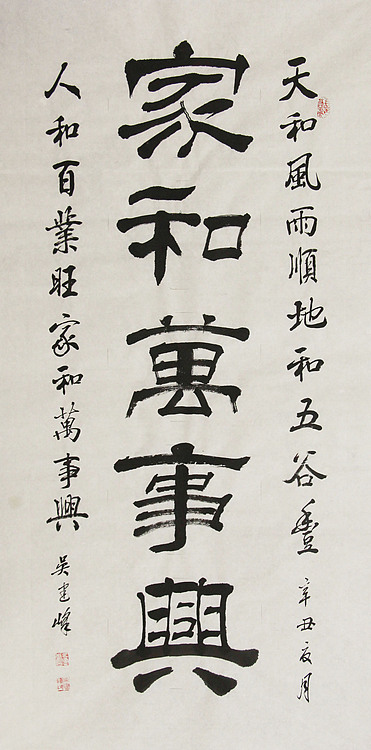 天和風雨順地和五谷豐 辛丑夏月
家和萬事興
人和百業旺家和萬事興 吴建峰